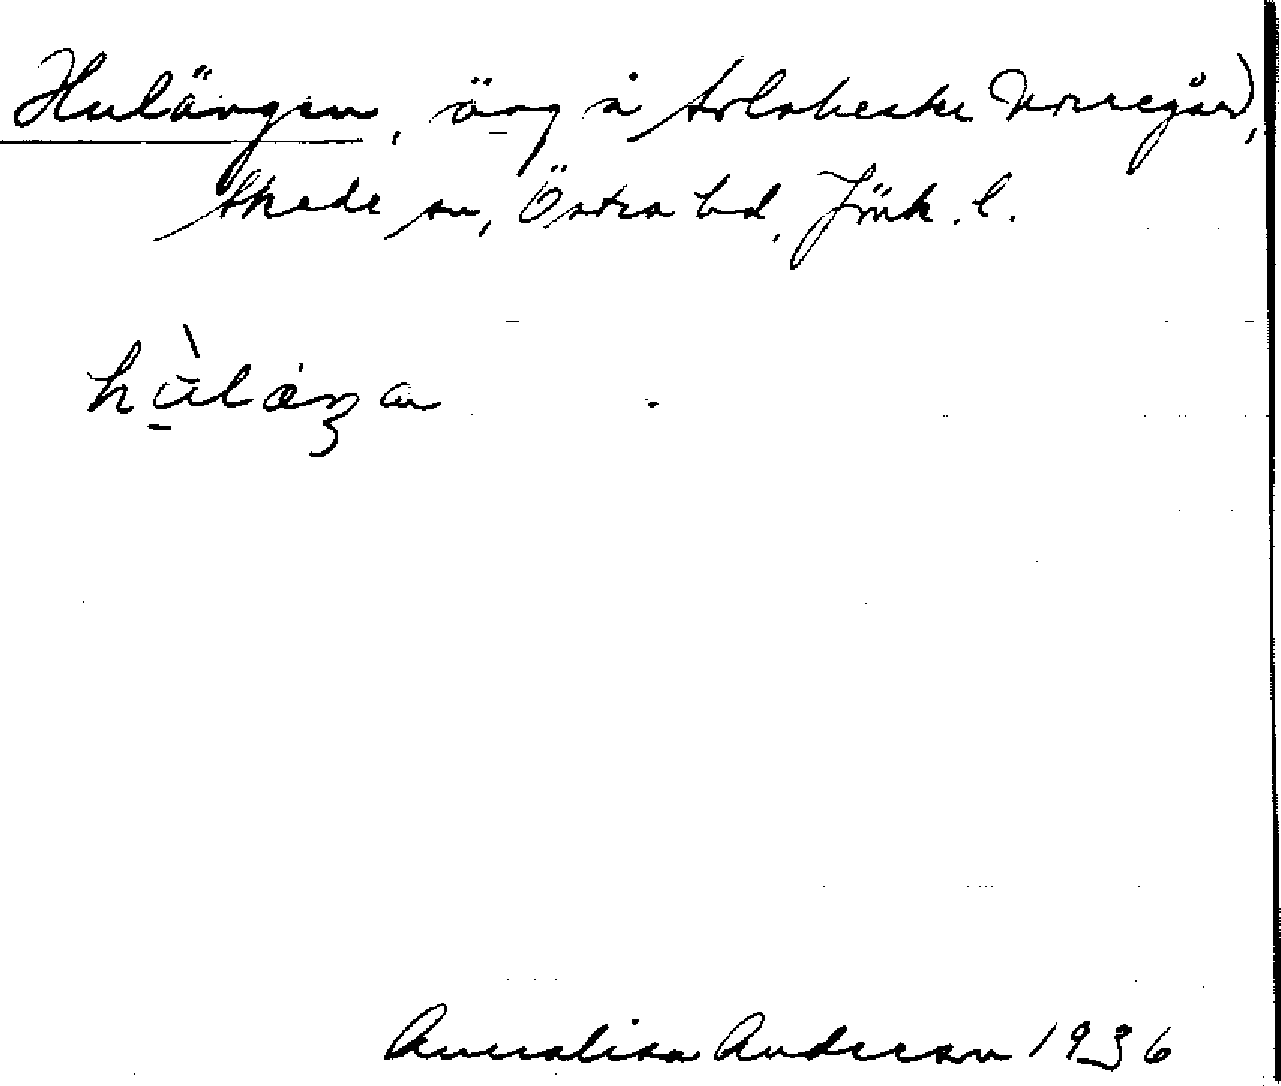 Hulängen, äng å Solaberke Norregård,
Skede sn, Östra hd, Jönk. l.
hùlàŋa
Annalisa Anderson 1936